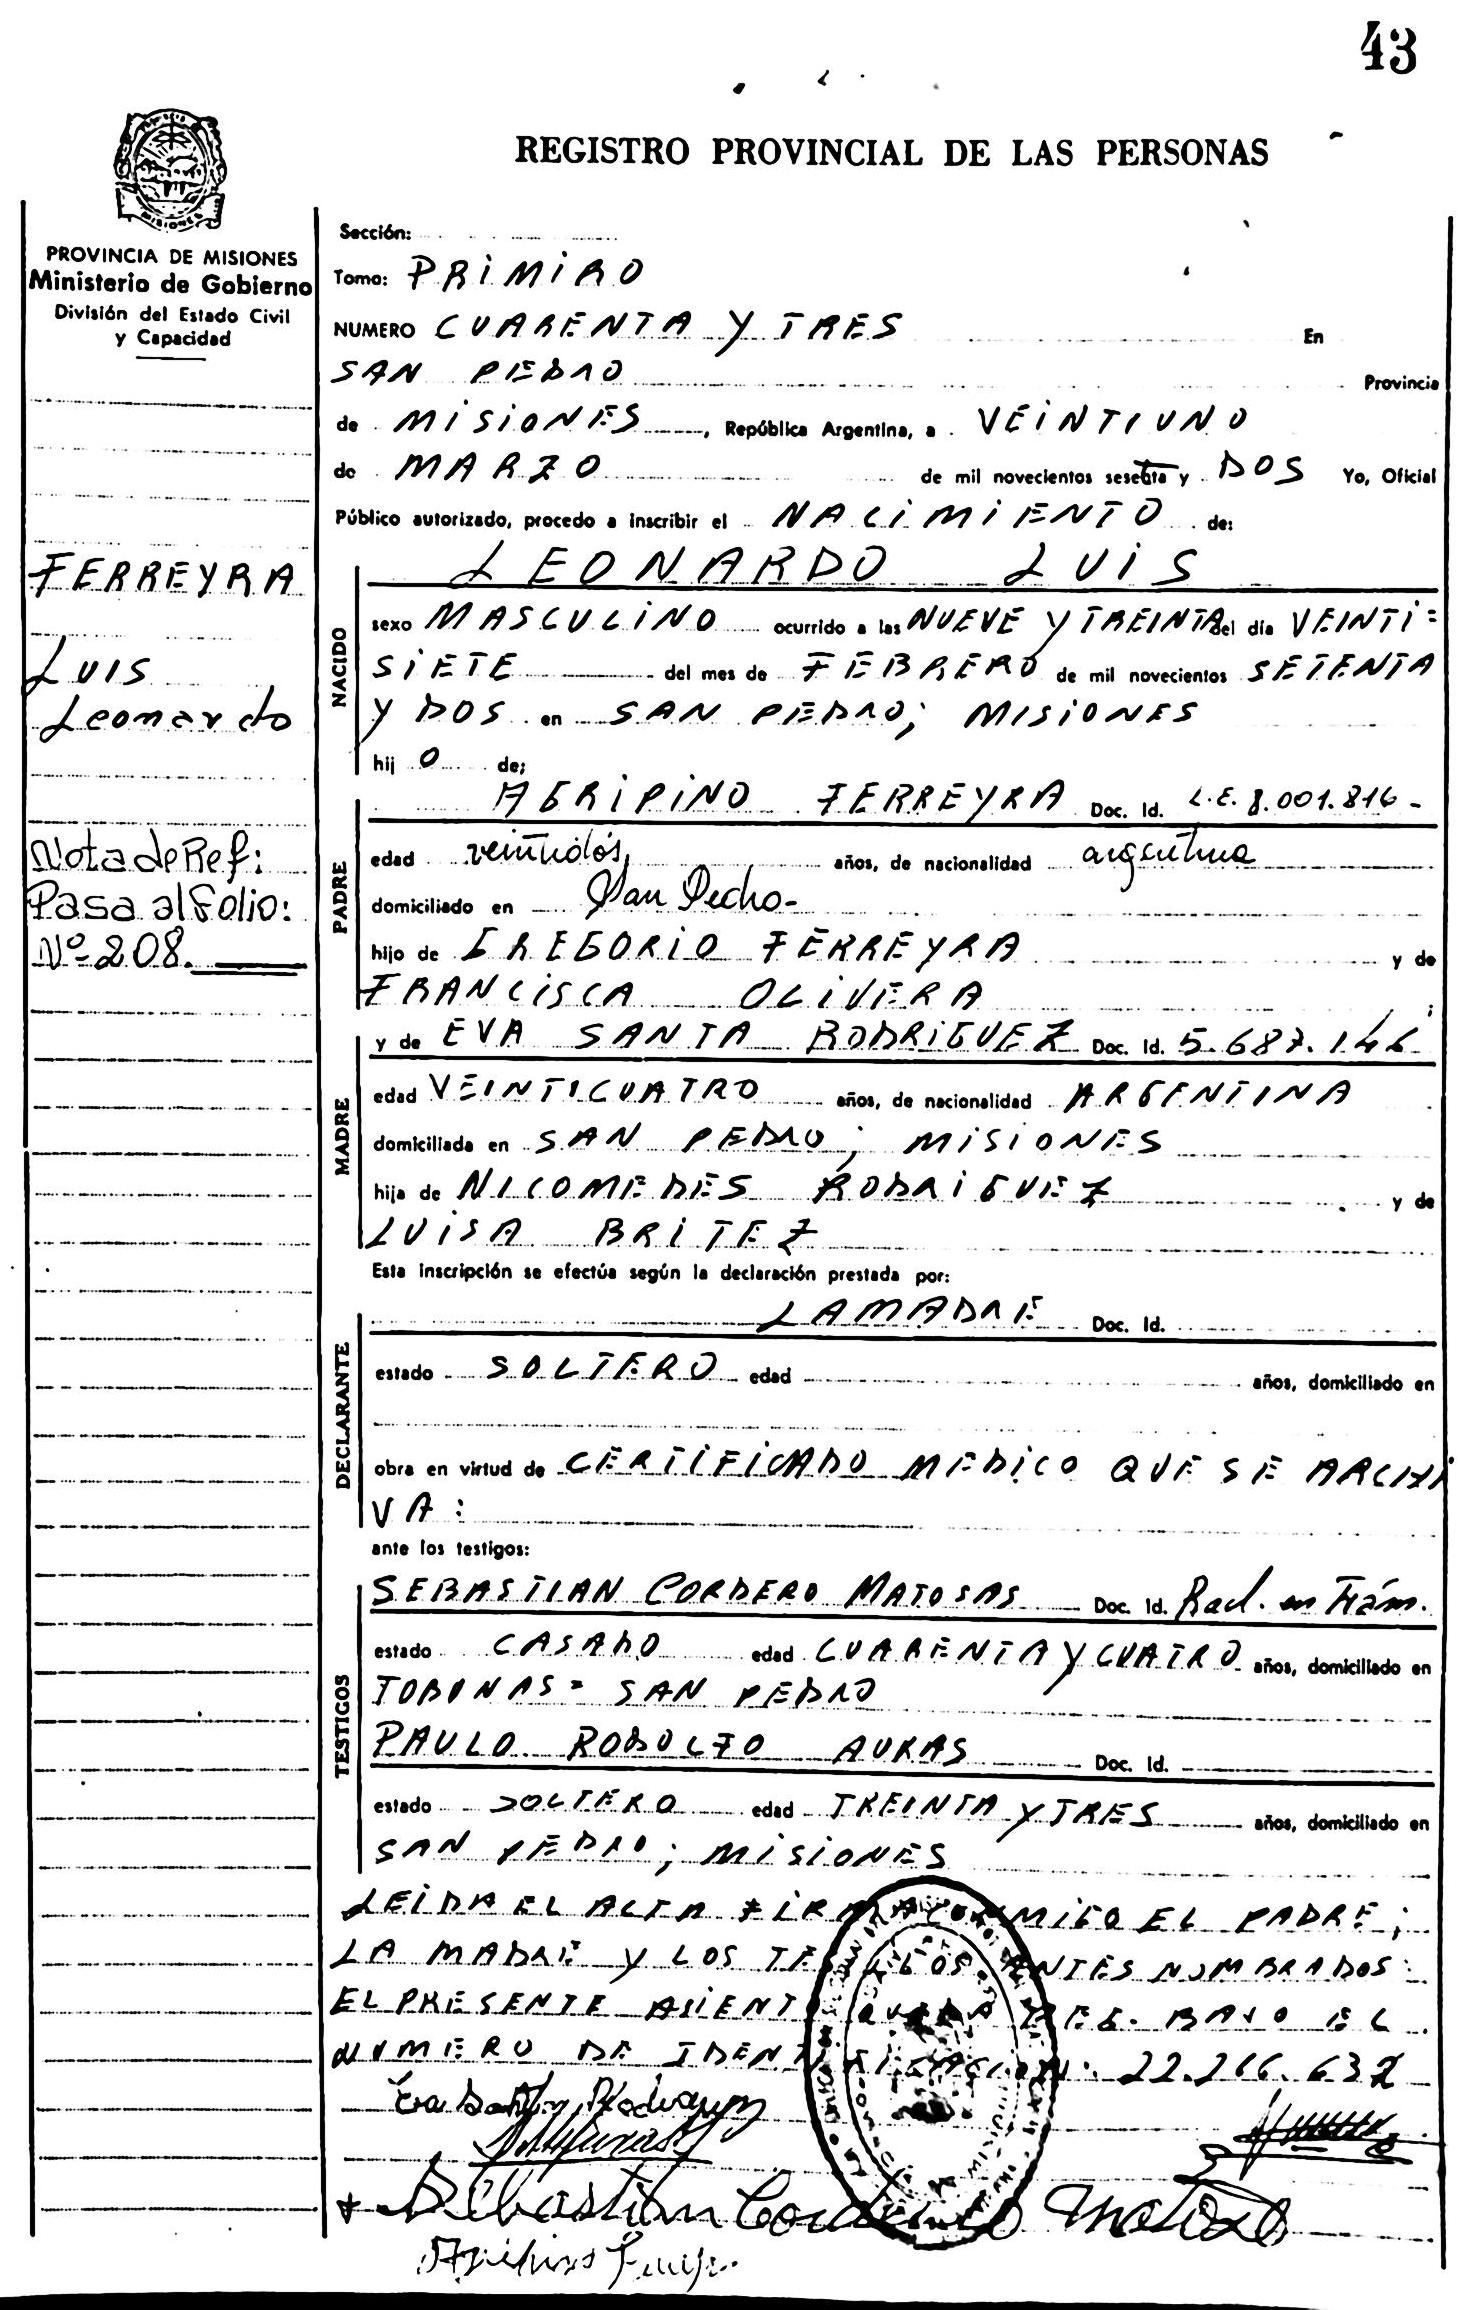 43
REGISTRO PROVINCIAL DE LAS PERSONAS
MISIONES
PROVINCIA DE MISIONES
Ministerio de Gobierno
División del Estado Civil
y Capacidad
FERREYRA
LUIS
Leonardo
Nota de Ref:
Pasa al Folio:
Nº 208.
Sección:
Tomo: PRIMIRO
NUMERO CUARENTA Y TRES En
SAN PEDRO Provincia
de MISIONES, República Argentina, a VEINTIUNO
de MARZO de mil novecientos setenta y DOS Yo, Oficial
Público autorizado, procedo a inscribir el NACIMIENTO de:
LEONARDO LUIS
NACIDO
sexo MASCULINO ocurrido a las NUEVE Y TREINTA del día VEINTI=
SIETE del mes de FEBRERO de mil novecientos SETENTA
Y DOS en SAN PEDRO; MISIONES
hij O de;
AGRIPINO FERREYRA Doc. Id. L.E. 8.001.816-
PADRE
edad veintidós, años, de nacionalidad argentina
domiciliado en San Pedro-
hijo de GREGORIO FERREYRA y de
FRANCISCA OLIVERA ;
y de EVA SANTA RODRIGUEZ Doc. Id. 5.687.146
MADRE
edad VEINTICUATRO años, de nacionalidad ARGENTINA
domiciliada en SAN PEDRO; MISIONES
hija de NICOMEDES RODRIGUEZ y de
LUISA BRITEZ
Esta inscripción se efectúa según la declaración prestada por:
LA MADRE Doc. Id.
DECLARANTE
estado SOLTERO edad años, domiciliado en
obra en virtud de CERTIFICADO MEDICO QUE SE ARCHI
VA:
ante los testigos:
SEBASTIAN CORDERO MATOSAS Doc. Id. Rad. en Trám.
TESTIGOS
estado CASADO edad CUARENTA Y CUATRO años, domiciliado en
TOBUNAS= SAN PEDRO
PAULO RODOLFO AURAS Doc. Id.
estado SOLTERO edad TREINTA Y TRES años, domiciliado en
SAN PEDRO; MISIONES
LEIDA EL ACTA FIRMA CONMIGO EL PADRE;
LA MADRE Y LOS TESTIGOS ANTES NOMBRADOS:
EL PRESENTE ASIENTO QUEDA REG. BAJO EL
NUMERO DE IDENTIFICACION: 22.266.632
Eva Santa Rodriguez
Sebastián Cordero Matosas